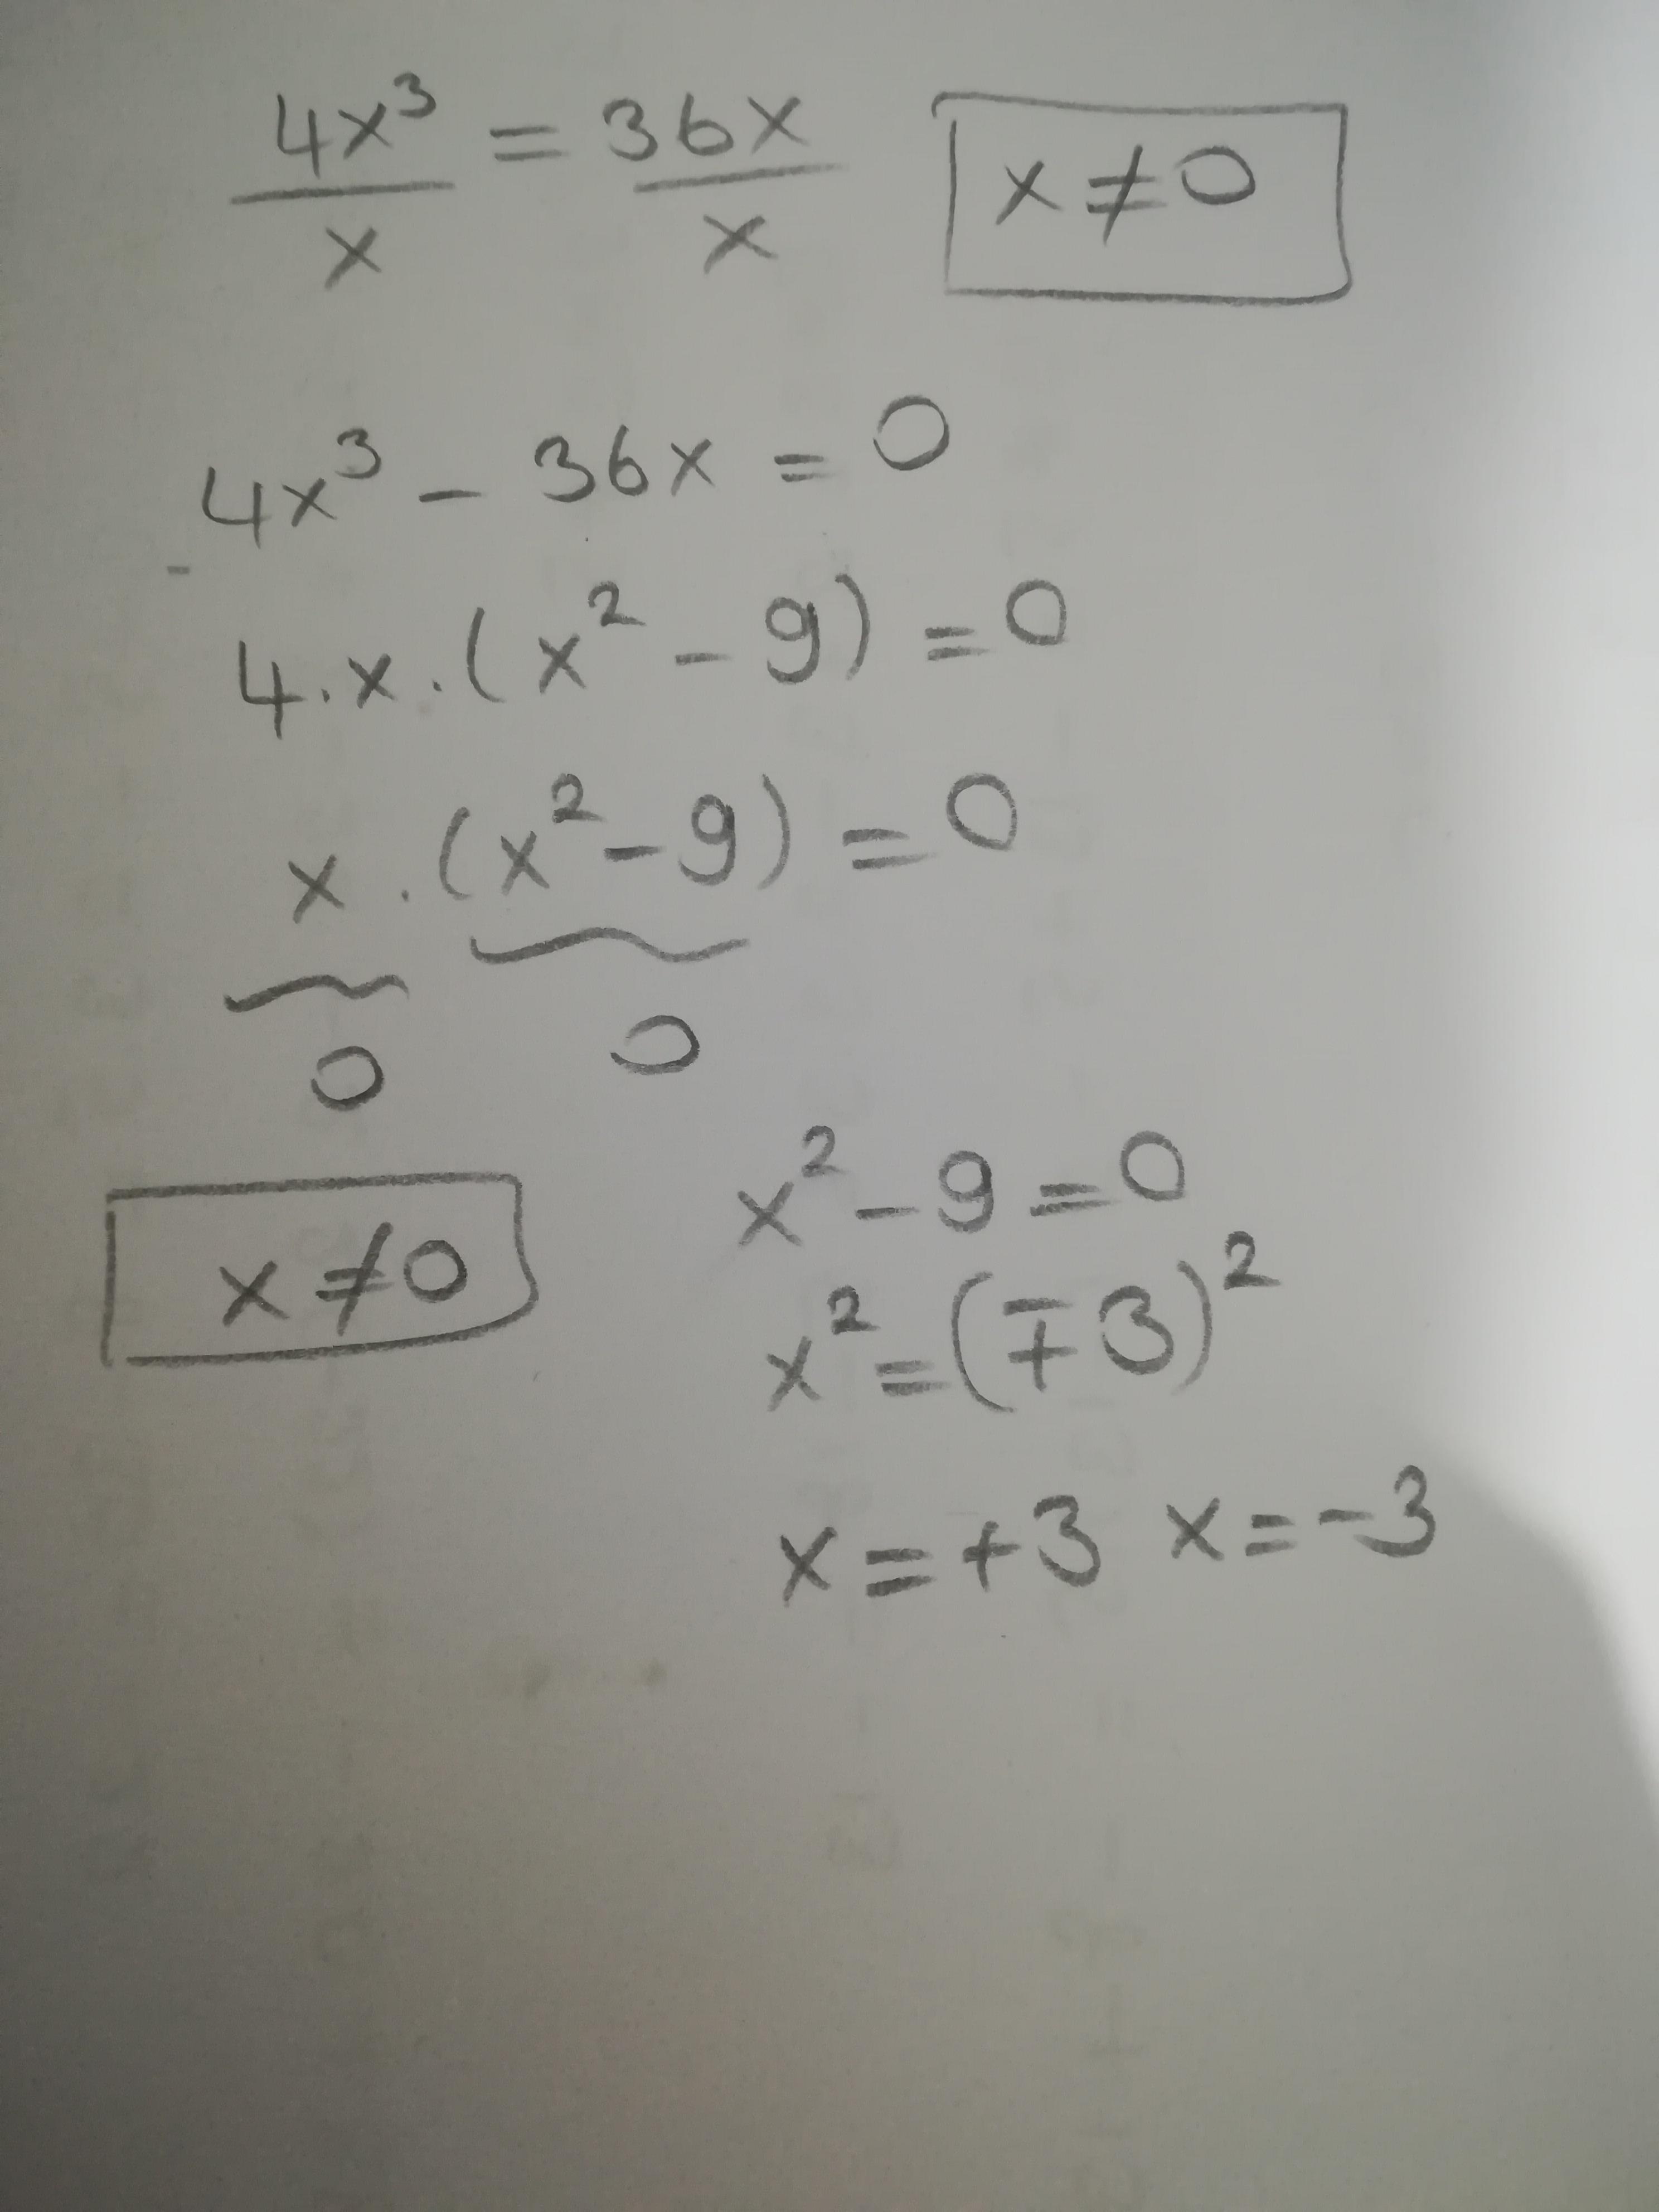 4x³/x = 36x/x x≠0
4x³ - 36x = 0
-
4.x.(x² - 9) = 0
x.(x² - 9) = 0
0 0
x≠0
x² - 9 = 0
x² = (∓3)²
x = +3 x = -3